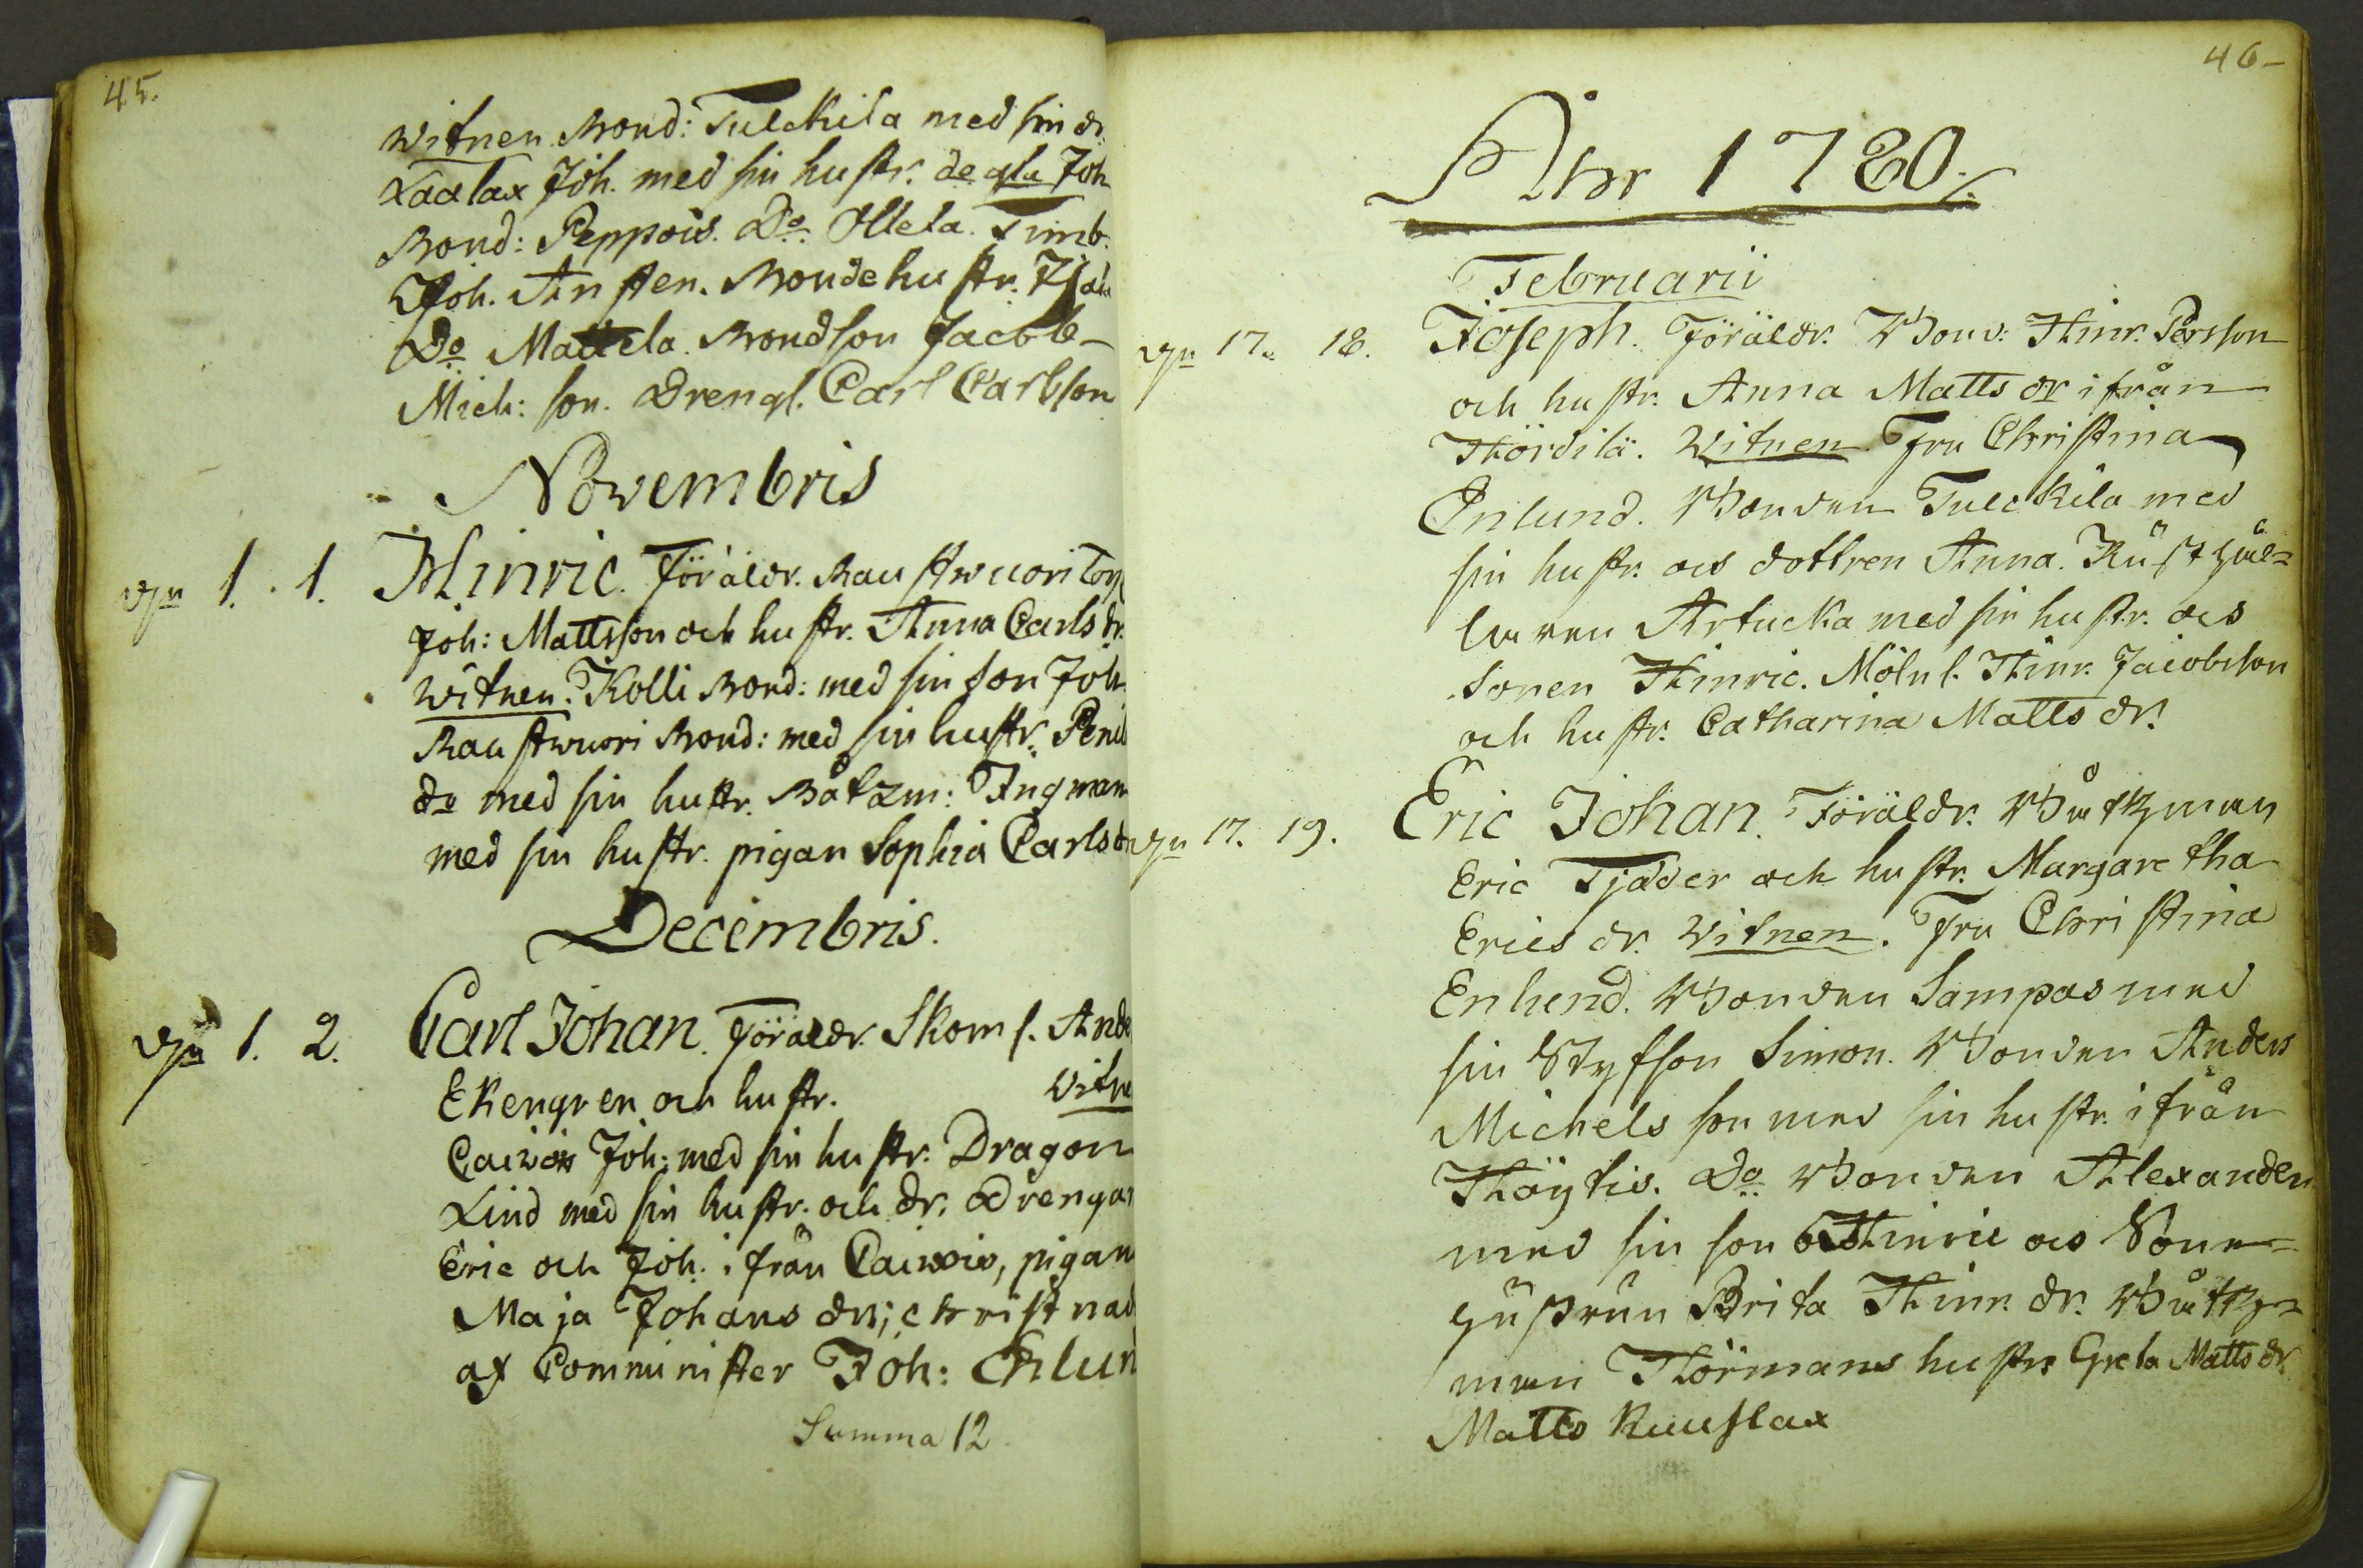 45.
Witnen. Bond: Tulckila med sin dr.
Laxlax Joh. med sin hustr. degla Joh
Bond: Peppois. Do. Olleta. Timb.
Joh. Ansten. Bondehustr.
Do Mattela. Bondson Jacob
Mich: son. Drengl. Carl Carlsson
Novembris
dyn 1. 1. Hinric. Föräldr. Raustwuori Torp
Joh: Mattsson och hustr. Anna Carlsdr.
Witnen. Kolli Bond: med sin son Joh.
Raustwuori Bond: med sin hustr. Penil
do med sin hustr. Båtzm: Ingman
med sin hustr. pigan Sophia Carlsdr
Decembris.
dyn 1. 2. Carl Johan. Föräldr. Skoml. Ande
Ekengren och hustr. Witn
Caiwois Joh: med sin hustr. Dragon
Lind med sin hustr. och dr. Drengar
Eric och Joh. ifrån Caiwois, pigan
Maja Johans dr; christnad
af Comminister Joh: Enlun
Summa 12.
46-
Åhr 1780.
Februarii
dyn 17. 18. Joseph. Föräldr. Bond: Hinr. Pärsson
och hustr. Anna Matts dr ifrån
Hördilä. Witnen. Fru Christina
Enlund. Bonden Tulckila med
sin hustr. och dottren Anna. Rüsthål-
laren Artucka med sin hustr. och
Sonen Hinric. Mölnl. Hinr. Jacobsson
och hustr. Catharina Matts dr.
dyn 17. 19. Eric Johan. Föräldr. Båtzman
Eric Tjäder och hustr. Margaretha
Erics dr. Witnen. Fru Christina
Enlund. Bonden Sampas med
sin Styfson Simon. Bonden Anders
Michels son med sin hustr. ifrån
Höytis. Do Bonden Alexander
med sin son Hinric och Sone-
hustrun Brita Hinr. dr. Båtz-
man Hörmans hustr Greta Matts dr.
Matts Kuuslax